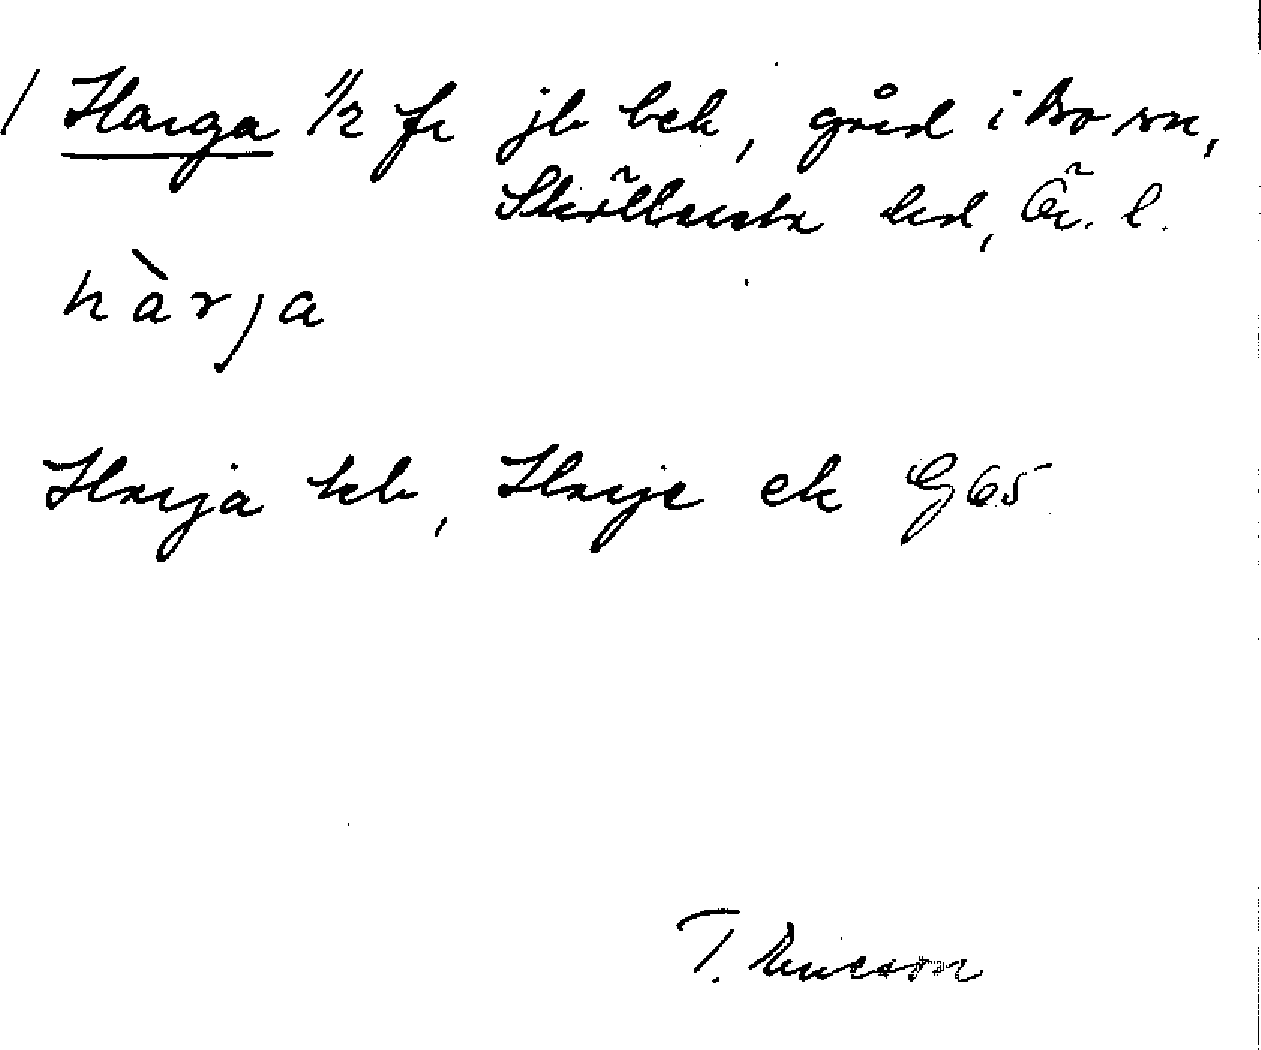 / Harga 1/2 fr jb bek, gård i Bo sn,
Sköllersta hd, Ör. l.
hàrja
Harja kb, Harje ek G 65
T. Ericson